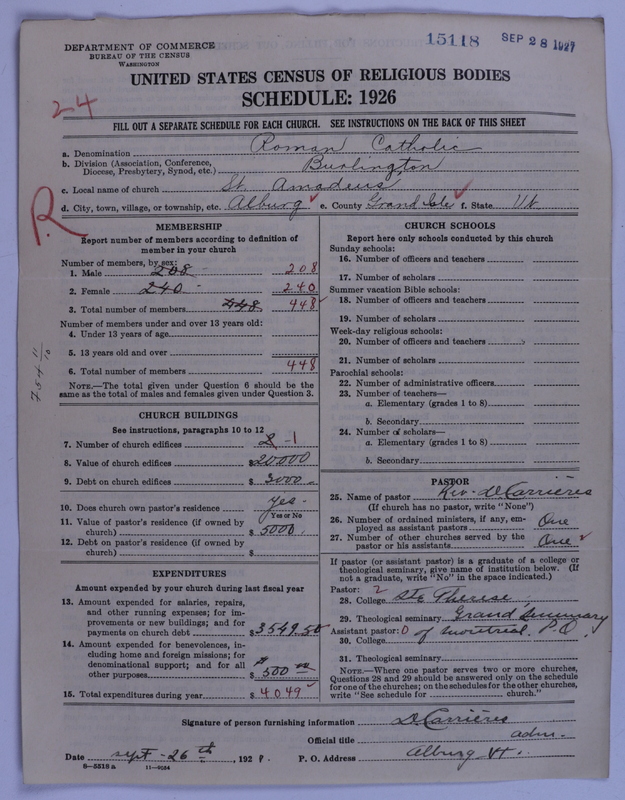 DEPARTMENT OF COMMERCE
BUREAU OF THE CENSUS
WASHINGTON
15118 SEP 28 1927
UNITED STATES CENSUS OF RELIGIOUS BODIES
SCHEDULE: 1926
24
FILL OUT A SEPARATE SCHEDULE FOR EACH CHURCH. SEE INSTRUCTIONS ON THE BACK OF THIS SHEET
a. Denomination Roman Catholic
b. Division (Association, Conference, Diocese, Presbytery, Synod, etc.) Burlington
c. Local name of church St. Amadeus
d. City, town, village, or township, etc. Alburg e. County Grand Isle f. State Vt.
R
MEMBERSHIP
Report number of members according to definition of member in your church
Number of members, by sex:
1. Male 208 - 208
2. Female 240 - 240
3. Total number of members 448 448
Number of members under and over 13 years old:
4. Under 13 years of age
5. 13 years old and over
6. Total number of members 448
NOTE.—The total given under Question 6 should be the same as the total of males and females given under Question 3.
CHURCH BUILDINGS
See instructions, paragraphs 10 to 12
7. Number of church edifices 2 - 1
8. Value of church edifices $20000
9. Debt on church edifices $3000
10. Does church own pastor's residence yes -
Yes or No
11. Value of pastor's residence (if owned by church) $5000
12. Debt on pastor's residence (if owned by church) $
EXPENDITURES
Amount expended by your church during last fiscal year
13. Amount expended for salaries, repairs, and other running expenses; for improvements or new buildings; and for payments on church debt $3549.50
14. Amount expended for benevolences, including home and foreign missions; for denominational support; and for all other purposes $500 00
15. Total expenditures during year $4049
CHURCH SCHOOLS
Report here only schools conducted by this church
Sunday schools:
16. Number of officers and teachers
17. Number of scholars
Summer vacation Bible schools:
18. Number of officers and teachers
19. Number of scholars
Week-day religious schools:
20. Number of officers and teachers
21. Number of scholars
Parochial schools:
22. Number of administrative officers
23. Number of teachers—
a. Elementary (grades 1 to 8)
b. Secondary
24. Number of scholars—
a. Elementary (grades 1 to 8)
b. Secondary
PASTOR
25. Name of pastor Rev. D. Carrières
(If church has no pastor, write "None")
26. Number of ordained ministers, if any, employed as assistant pastors One
27. Number of other churches served by the pastor or his assistants One
If pastor (or assistant pastor) is a graduate of a college or theological seminary, give name of institution below. (If not a graduate, write "No" in the space indicated.)
Pastor: 2
28. College Ste Therese
29. Theological seminary Grand Seminary
Assistant pastor: 0 of Montreal, P.Q.
30. College
31. Theological seminary
NOTE.—Where one pastor serves two or more churches, Questions 28 and 29 should be answered only on the schedule for one of the churches; on the schedules for the other churches, write "See schedule for church."
Signature of person furnishing information D. Carrières
Official title adm.
Date sept - 26 th, 192 P. O. Address Alburg Vt.
8—5518 a 11—9084